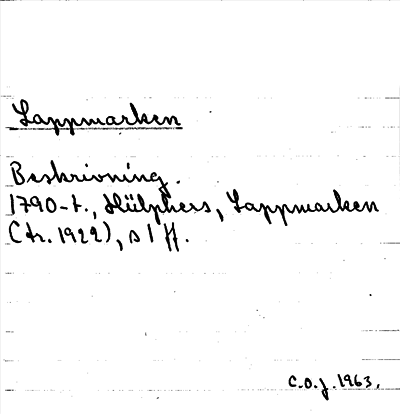 Lappmarken
Beskrivning.
1790-t., Hülphers, Lappmarken
(tr. 1922), s 1 ff.
C.O.J. 1963.